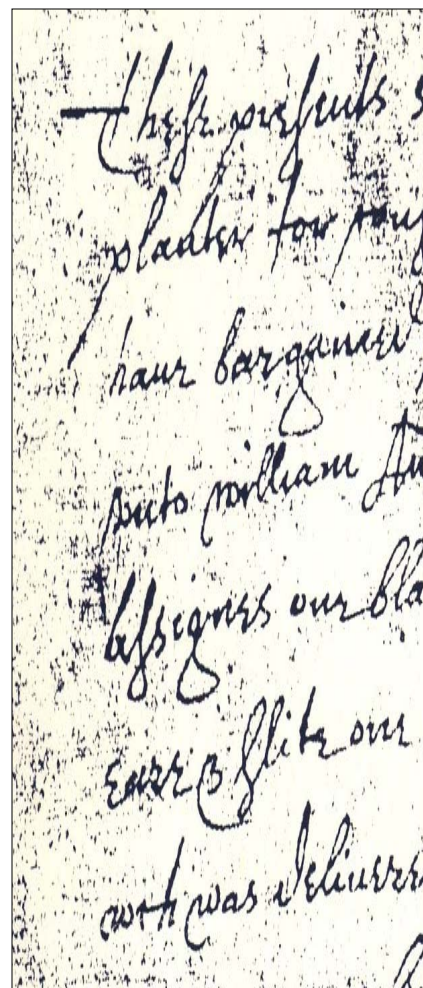 these presents s
planter for my
haue bargained
unto william Au
assignes one bla
eare & slitt one
wch was deliuere